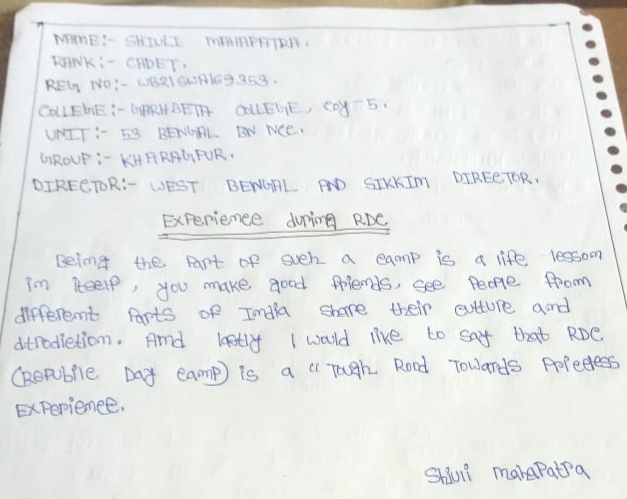 NAME:- SHIULI MAHAPATRA.
RANK:- CADET.
REG NO:- WB21SWA169353.
COLLEGE:- GARHBETA COLLEGE, COY-5.
UNIT:- 53 BENGAL BN NCC.
GROUP:- KHARAGPUR.
DIRECTOR:- WEST BENGAL AND SIKKIM DIRECTOR.
Experience during RDC
Being the part of such a camp is a life lesson
in itself, you make good friends, see people from
different parts of India share their culture and
And lastly I would like to say that RDC
(Republic Day camp) is a "Tough Road Towards Priceless
Experience.
Shiuli Mahapatra